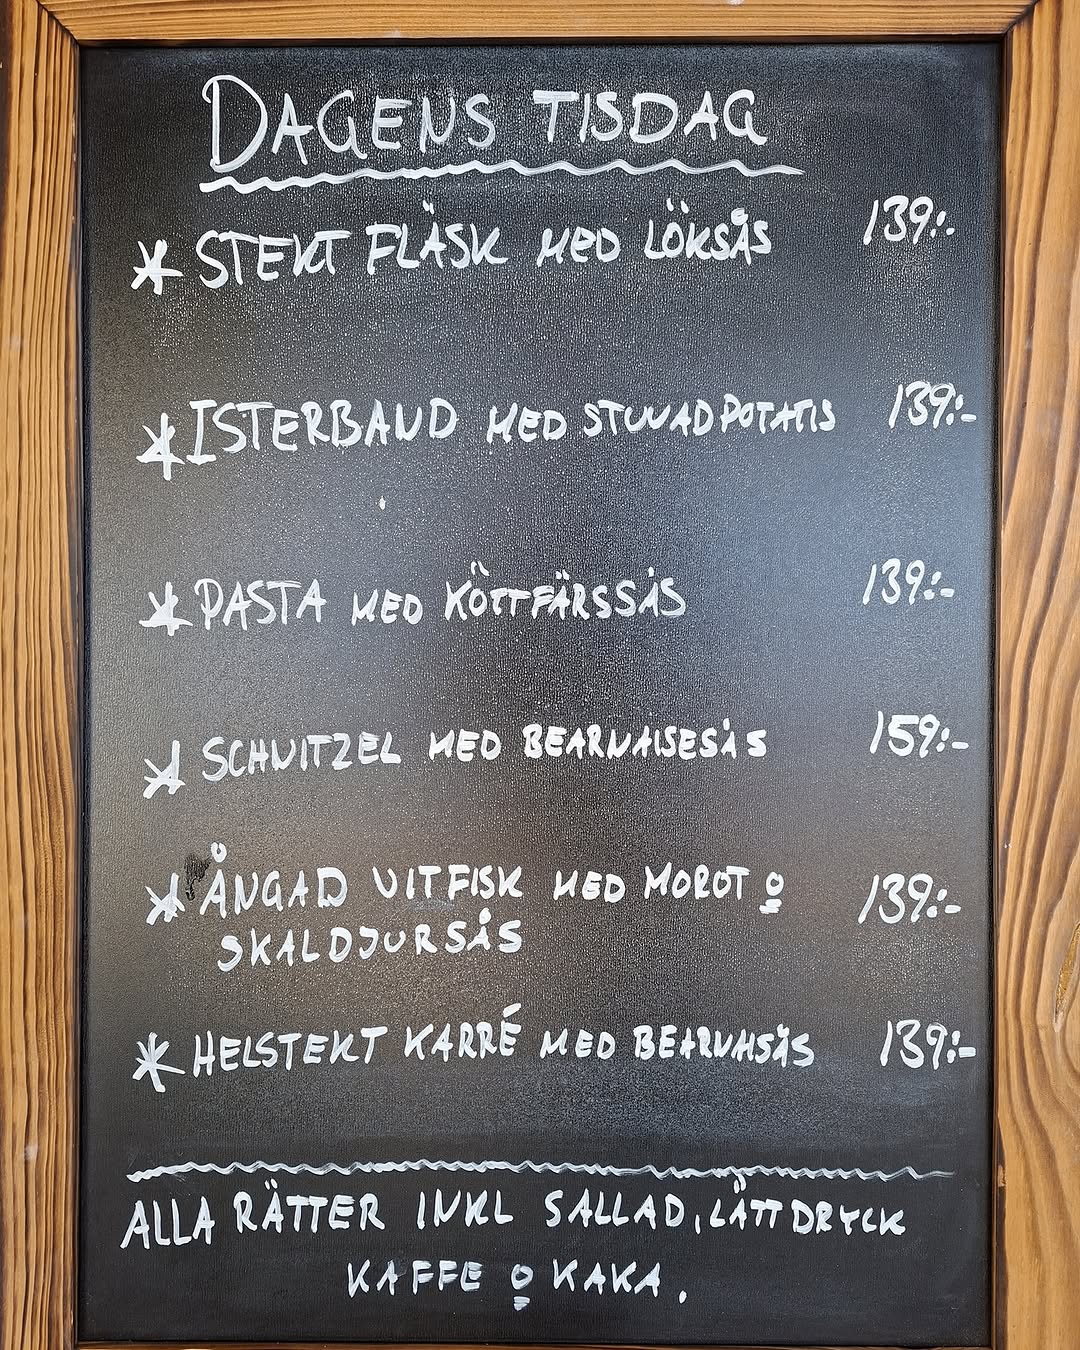 DAGENS TISDAG
* STEKT FLÄSK MED LÖKSÅS 139:-
* ISTERBAND MED STUVAD POTATIS 139:-
* PASTA MED KÖTTFÄRSSÅS 139:-
* SCHNITZEL MED BEARNAISESÅS 159:-
* ÅNGAD VITFISK MED MOROT o 139:-
SKALDJURSÅS
* HELSTEKT KARRÉ MED BEARNAISÅS 139:-
ALLA RÄTTER INKL SALLAD, LÄTTDRYCK
KAFFE o KAKA.